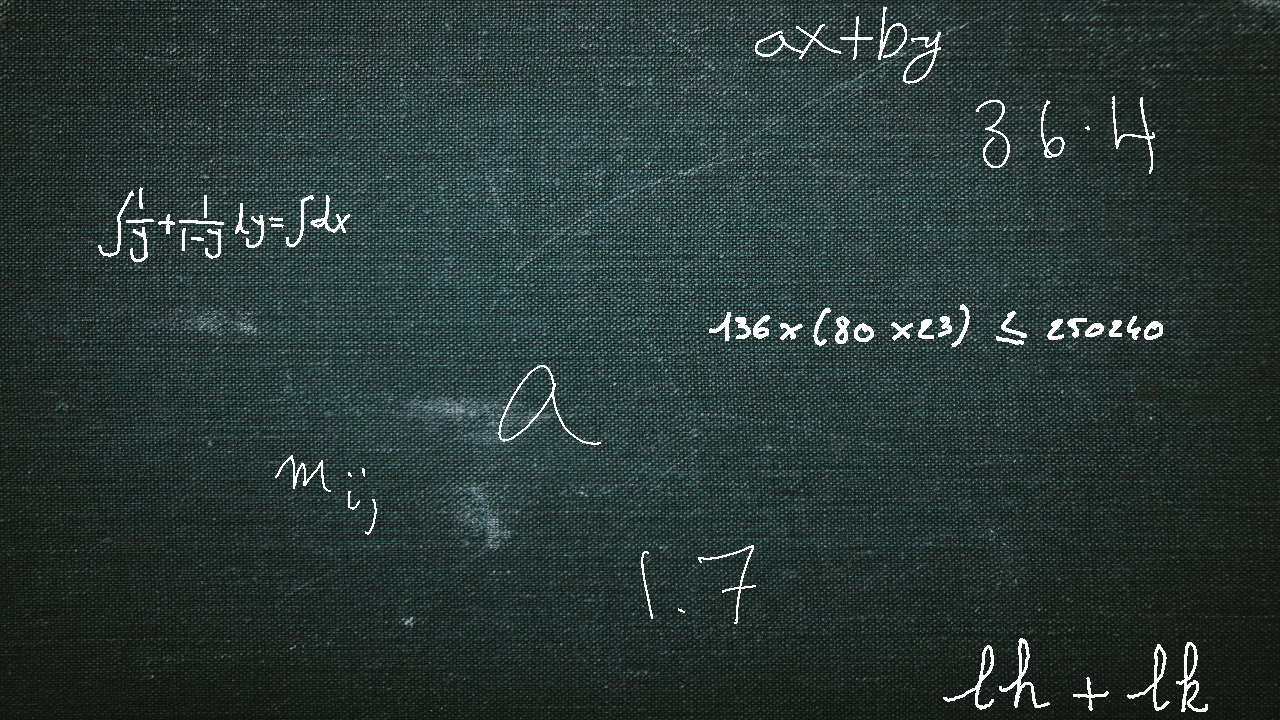 ax+by
36·4
∫1/y+1/(1-y) dy=∫dx
136x(80x23) ≤ 250240
a
m_ij
1.7
lh + lk